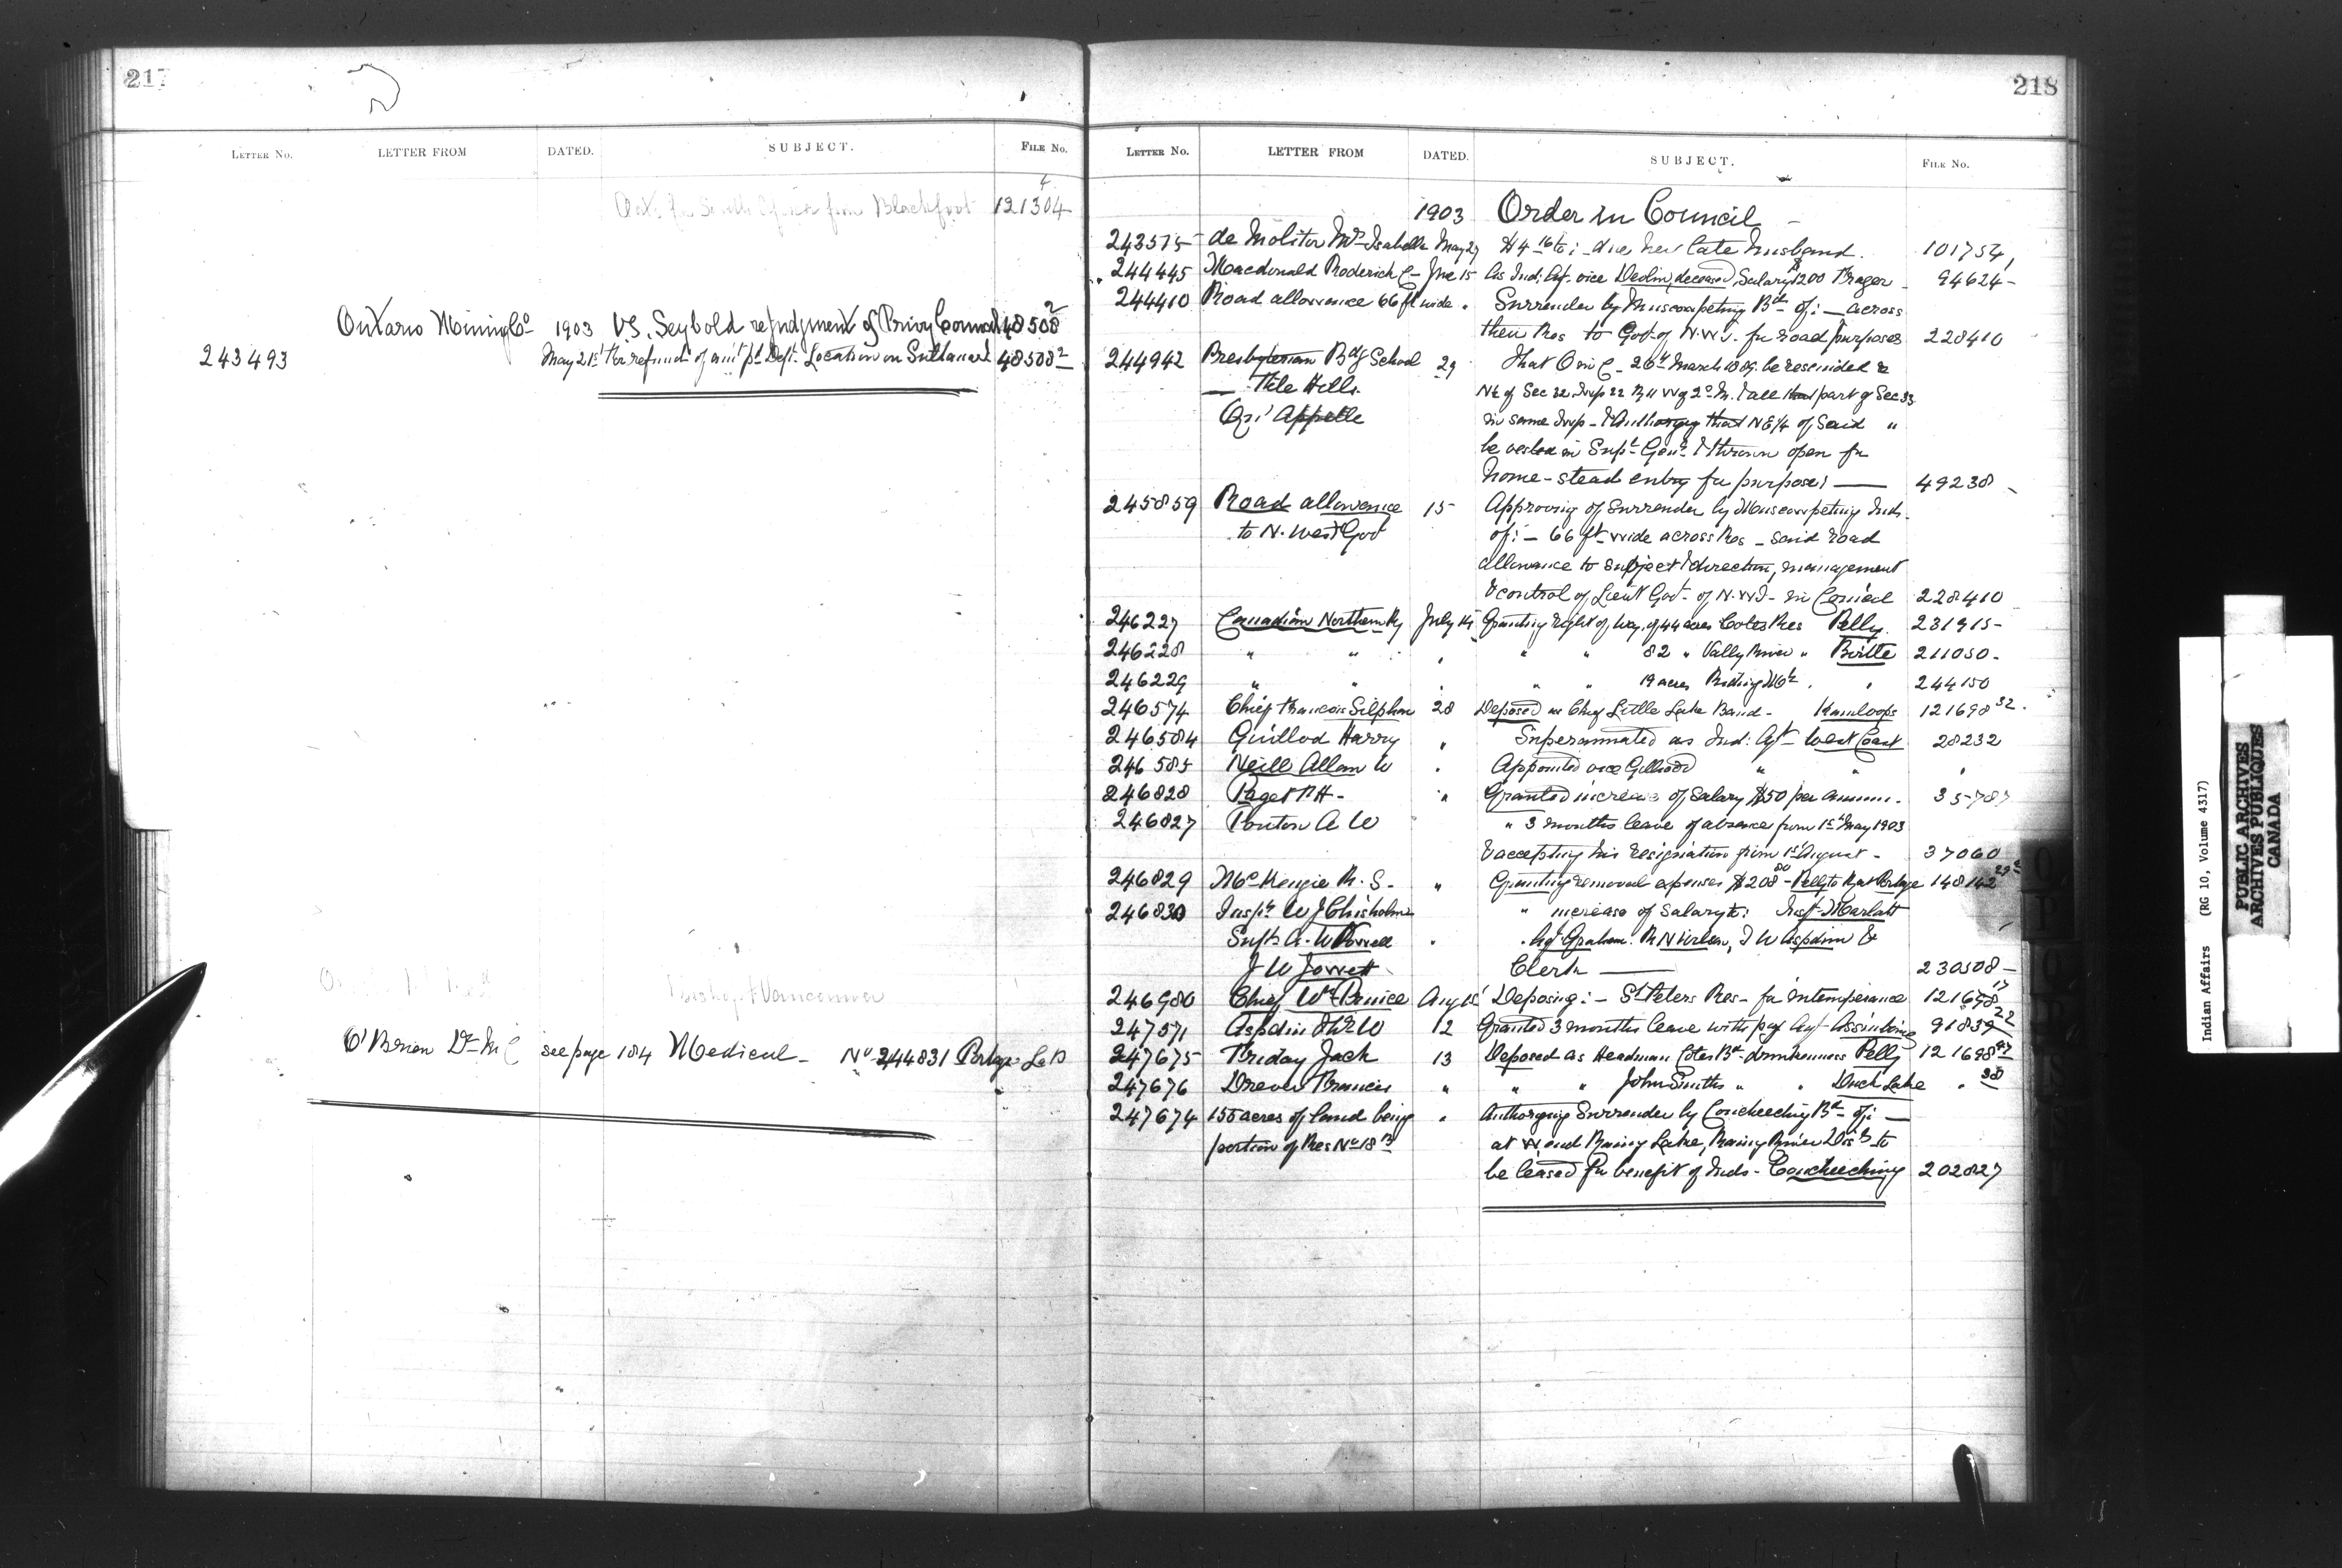 217
LETTER No. LETTER FROM DATED. SUBJECT. FILE No.
from Blackfoot 121304 4
Ontario Mining Co 1903 VS. Seybold re judgment of Privy Council 48508 2
243493 May 21st for refund of amt pd Dept. Location on Sultana Isd 48508 2
Bishop of Vancouver
O'Brien Dr M C see page 184 Medical - No 244831 Portage La P
218
LETTER No. LETTER FROM DATED. SUBJECT. FILE No.
1903 Order in Council -
243575 de Molitor Mrs Isabella May 27 $4 16 to :- due her late husband. 101754
244445 Macdonald Roderick C - Jne 15 As Ind: Agt. vice Devlin, deceased, Salary $1200 94624 -
244410 Road allowance 66 ft wide . Surrender by Muscowpeting Bd of :- across
their Res to Govt of N.W.T. for road purposes 228410
244942 Presbyterian Bdg School 29 That O in C - 26th March 1889 be rescinded &
- File Hills N½ of Sec 32 Twp 22 R 11 W of 2d M. & all that part of Sec 33
Qu'Appelle in same Twp - & Authorizing that NE 1/4 of Said "
be vested in Supt Genl & thrown open for
home-stead entry for purposes - 49238
245859 Road allowance 15 Approving of Surrender by Muscowpeting Inds.
to N. West Govt of :- 66 ft wide across Res - said road
allowance to subject & direction, management
& control of Lieut Govr - of N.W.T - in Council 228410
246227 Canadian Northern Ry July 14 Granting right of way of 44 acres Cotes Res Pelly 231915 -
246228 " " " " " 82 " Vally River " Birtle 211050 -
246229 " " " " " 19 acres Riding Mt " " 244150
246574 Chief Francois Silphan 28 Deposed as Chief Little Lake Band - Kamloops 121698 32
246584 Guillod Harry " Superannuated as Ind: Agt - West Coast 28232
246585 Neill Allan W " Appointed vice Gillood " " "
246828 Paget F H - " Granted increase of Salary $50 per annum. 35787
246827 Ponton A W " 3 months leave of absence from 1st May 1903
& accepting his resignation from 1st August - 37060
246829 McKenzie R. S. " Granting removal expenses $208 00 - Pelly to Rat Portage 148142
246830 Inspr W J Chisholm " increase of Salary to: Insp. Marlatt
J W Jowett Clerk - 230508 -
246980 Chief Wm Prince Aug 15 Deposing :- St Peters Res - for intemperance 121698 17
247571 Aspdin Thos W 12 Granted 3 months leave with pay Agt - Assiniboine 91839 22
247675 Friday Jack 13 Deposed as Headman Cotes Bd - drunkenness Pelly 121698 37
247676 Dreaver Francis " " " John Smiths " " Duck Lake " 38
247674 155 acres of land being " Authorizing Surrender by Coucheeching Bd - of :-
portion of Res No 18 B at W end Rainy Lake, Rainy River Dist to
be leased for benefit of Inds - Coucheeching 202827
Indian Affairs (RG 10, Volume 4317)
PUBLIC ARCHIVES
ARCHIVES PUBLIQUES
CANADA